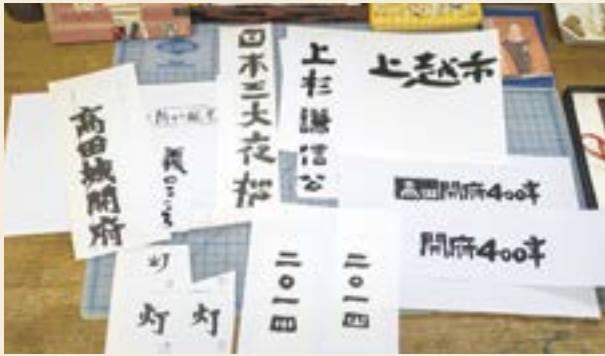 高田城開府
義のこころ
日本三大夜桜
上杉謙信公
上越市
高田開府400年
開府400年
灯
灯
灯
二〇一四
二〇一四